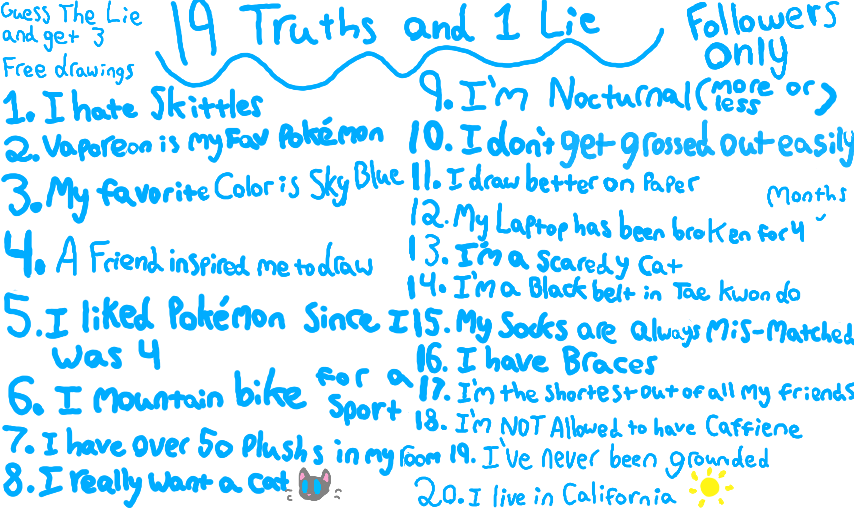 Guess The Lie
and get 3
Free drawings
19 Truths and 1 Lie
Followers
Only
1. I hate Skittles
2. Vaporeon is my Fav Pokémon
3. My favorite Color is Sky Blue
4. A Friend inspired me to draw
5. I liked Pokémon Since I
was 4
6. I Mountain bike for a
Sport
7. I have over 50 Plushs in my room
8. I really want a cat
9. I'm Nocturnal (more or
less)
10. I don't get grossed out easily
11. I draw better on Paper
12. My Laptop has been broken for 4 Months
13. I'm a Scaredy Cat
14. I'm a Black belt in Tae Kwon do
15. My Socks are always Mis-Matched
16. I have Braces
17. I'm the Shortest out of all my friends
18. I'm NOT Allowed to have Caffiene
19. I've never been grounded
20. I live in California